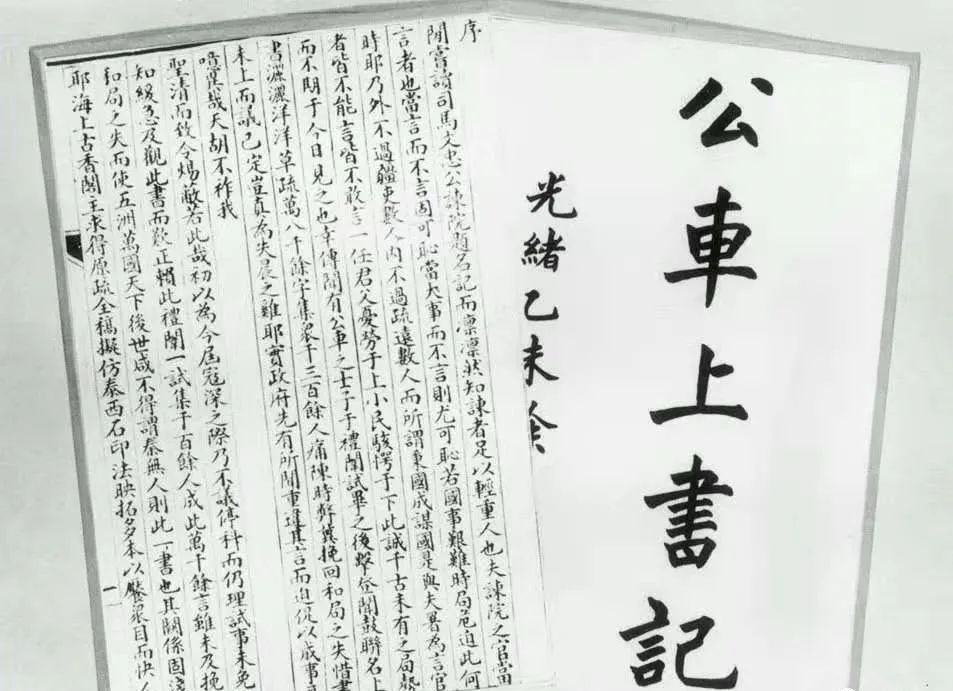 公車上書記
光緒乙未余
序
聞嘗讀司馬文忠公諫院題名記而凜凜然知諫者足以輕重人也夫諫院之官當
言者也當言而不言固可恥當大事而不言則尤可恥若國事艱難時局危迫此何
時耶乃外不過疆吏數人內不過疏遠數人而所謂秉國成謀國是與夫書為言官
者皆不能言皆不敢言一任君父憂勞于上小民駭愕于下此誠千古未有之局
而不期于今日見之也幸傳聞有公車之士子于禮闈試畢之後擊登聞鼓聯名上
書灑灑洋洋草疏萬八千餘字集眾千三百餘人痛陳時弊冀挽回和局之失惜書
未上而議已定豈真為失晨之雞耶實政府先有所聞重違其言而迫促以成事
哉天胡不祚我
聖清而致令煬蔽若此哉初以為今屆寇深之際乃不議停科而仍理試事未免
知緩急及觀此書而歎正賴此禮闈一試集千百餘人成此萬千餘言雖未及挽
和局之失而使五洲萬國天下後世咸不得謂秦無人則此一書也其關係固淺
耶海上古香閣主求得原疏全稿擬仿泰西石印法映拓多本以饜眾目而快人
一